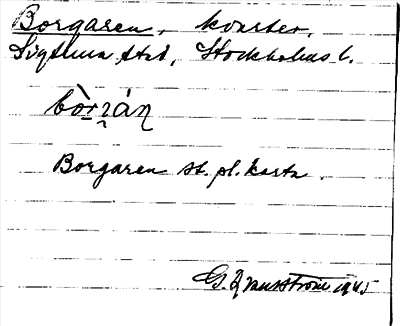 Borgaren, kvarter,
Sigtuna stad, Stockholms l.
bòrɿán
Borgaren st. pl. karta.
G. Qvarnström 1945